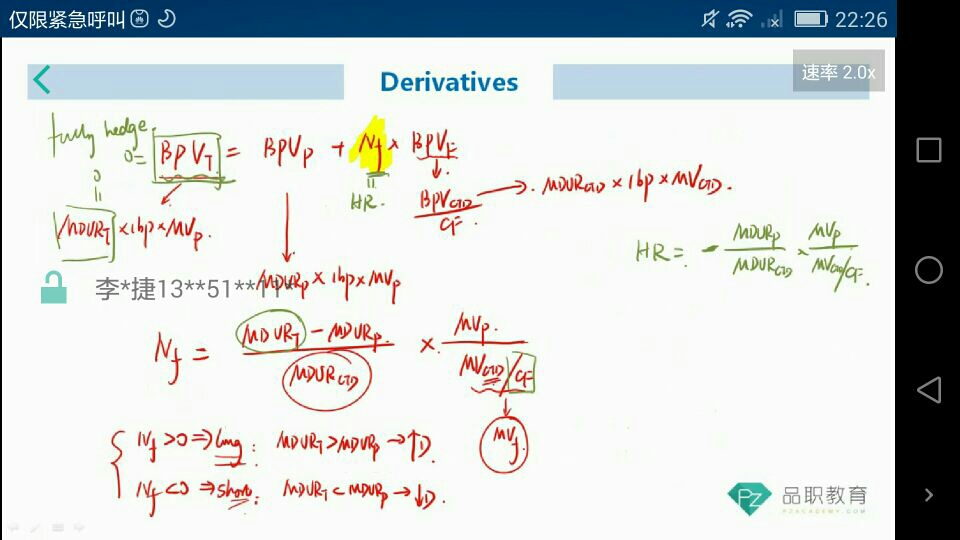 仅限紧急呼叫 22:26
Derivatives
速率 2.0x
fully hedge
0= BPV_T = BPV_P + N_f × BPV_F
0 = HR. BPV_CTD / CF → MDUR_CTD × 1bp × MV_CTD.
MDUR_T × 1bp × MV_P.
HR = - MDUR_P / MDUR_CTD × MV_P / MV_CTD/CF.
MDUR_P × 1bp × MV_P
李*捷13**51**11*
N_f = MDUR_T - MDUR_P / MDUR_CTD × MV_P. / MV_CTD/CF
MV_f.
N_f >0 ⇒ long: MDUR_T > MDUR_P → ↑D.
N_f <0 ⇒ short: MDUR_T < MDUR_P → ↓D.
PZ 品职教育
PZACADEMY.COM